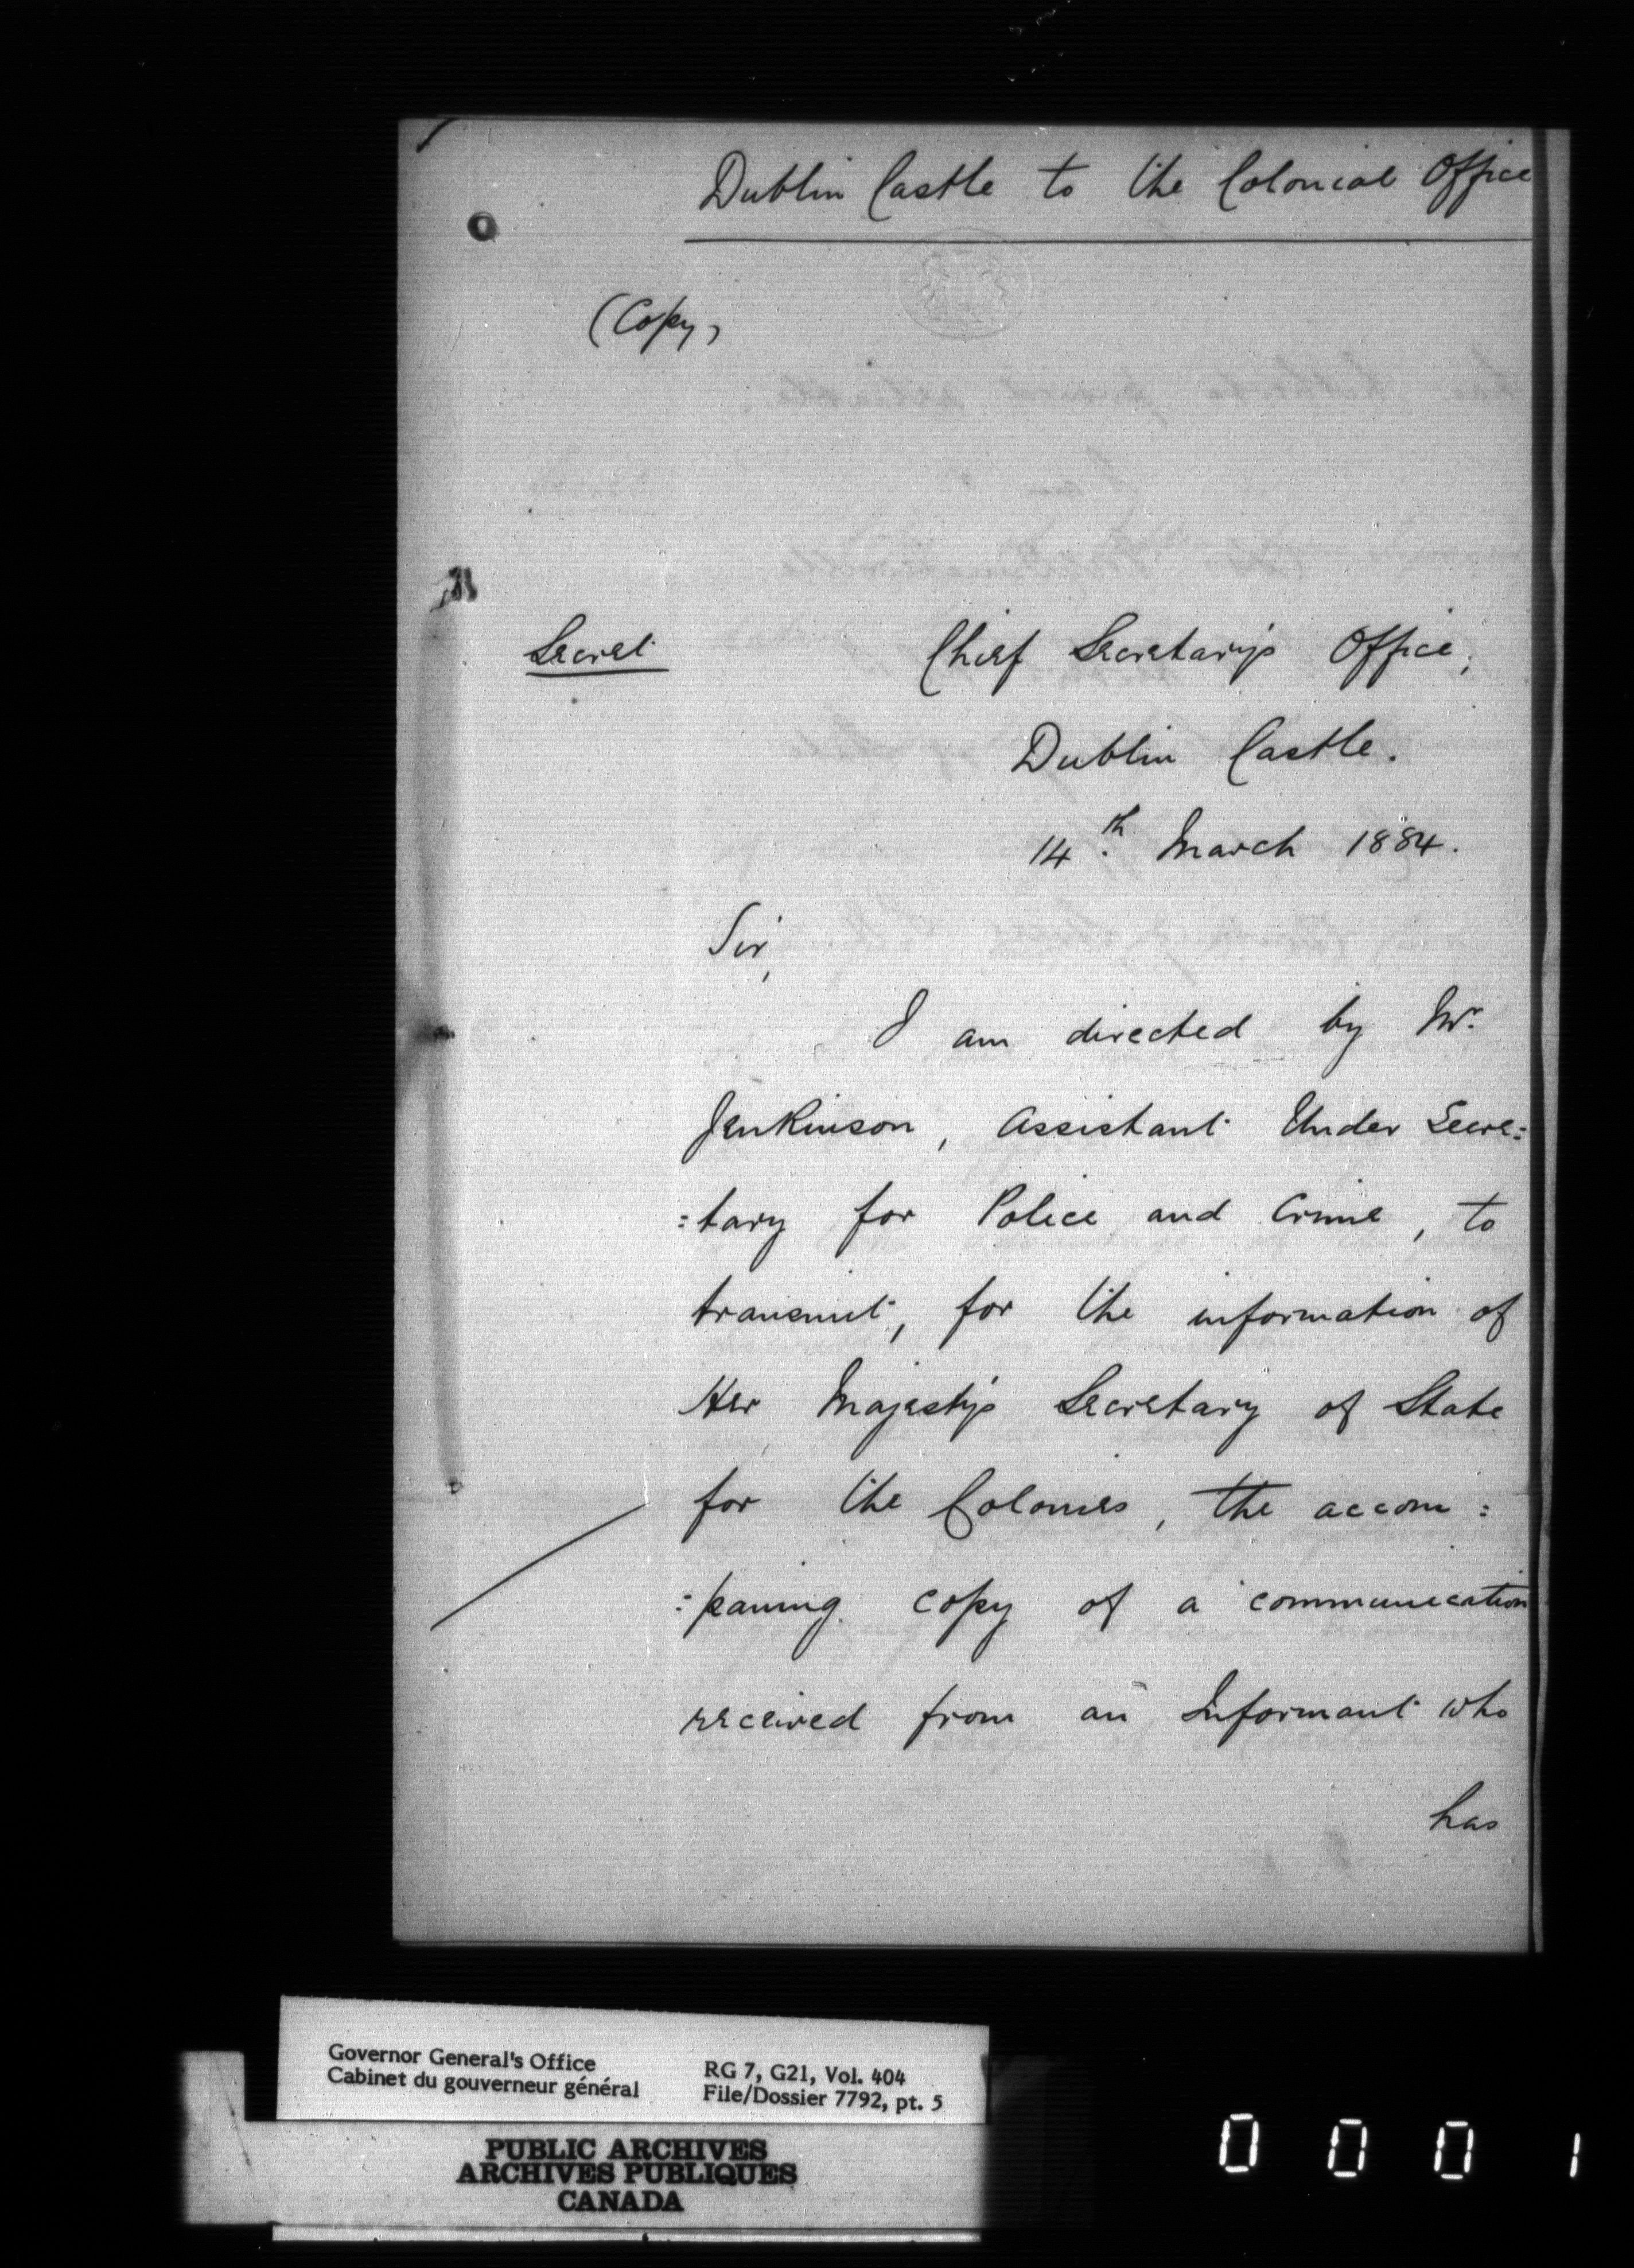 Dublin Castle to the Colonial Office
(Copy)
Secret
Chief Secretary's Office,
Dublin Castle.
14th. March 1884.
Sir,
I am directed by Mr.
Jenkinson, Assistant Under Secre:
:tary for Police and Crime, to
transmit, for the information of
Her Majesty's Secretary of State
for the Colonies, the accom:
:paning copy of a communication
received from an Informant who
has
Governor General's Office
Cabinet du gouverneur général
RG 7, G21, Vol. 404
File/Dossier 7792, pt. 5
PUBLIC ARCHIVES
ARCHIVES PUBLIQUES
CANADA
0001